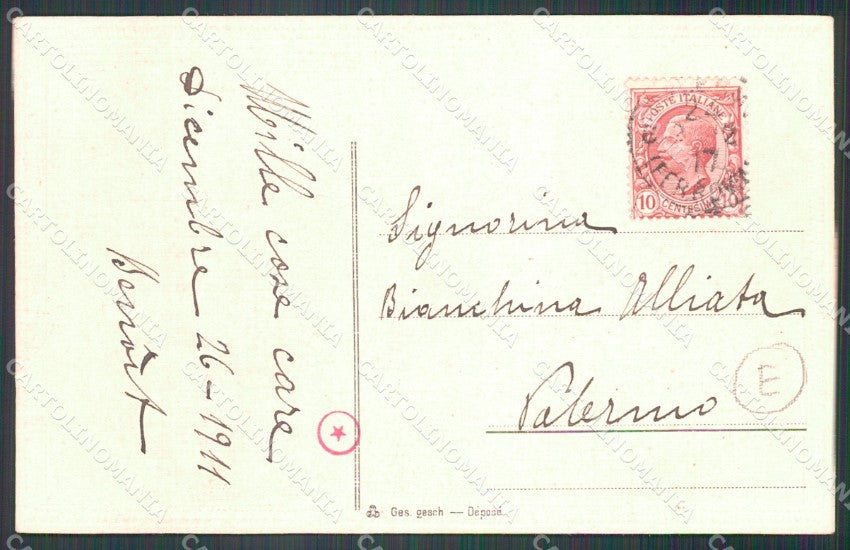 Mille cose care
Dicembre 26-1911
POSTE ITALIANE
10 CENTESIMI 10
Signorina
Bianchina Alliata
Palermo
E
Ges. gesch — Déposé
CARTOLINOMANIA